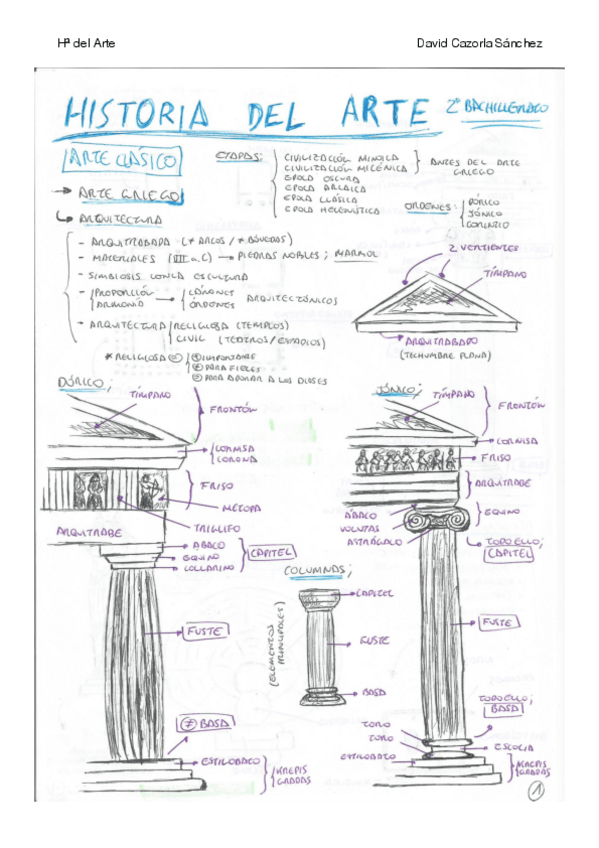 Hª del Arte
David Cazorla Sánchez
HISTORIA DEL ARTE 2º BACHILLERATO
ARTE CLÁSICO
ETAPAS:
CIVILIZACIÓN MINOICA
CIVILIZACIÓN MICÉNICA
ÉPOCA OSCURA
ÉPOCA ARCAICA
ÉPOCA CLÁSICA
ÉPOCA HELENÍSTICA
ANTES DEL ARTE
GRIEGO
ÓRDENES:
DÓRICO
JÓNICO
CORINTIO
→ ARTE GRIEGO
ARQUITECTURA
- ARQUITRABADA (≠ ARCOS / ≠ BÓVEDAS)
- MATERIALES (a.C) → PIEDRAS NOBLES; MARMOL
- SIMBIOSIS CON LA ESCULTURA
- PROPORCIÓN
ARMONÍA
→ CÁNONES
ÓRDENES
ARQUITECTÓNICOS
- ARQUITECTURA
RELIGIOSA (TEMPLOS)
CIVIL (TEATROS/ESTADIOS)
* RELIGIOSA
IMPORTANTE
PARA FIELES
PARA ADORAR A LOS DIOSES
2 VERTIENTES
TÍMPANO
ARQUITRABADO
(TECHUMBRE PLANA)
DÓRICO;
TÍMPANO
FRONTÓN
CORNISA
CORONA
FRISO
METOPA
TRIGLIFO
ARQUITRABE
ABACO
EQUINO
COLLARINO
CAPITEL
FUSTE
≠ BASA
ESTILOBATO
KREPIS
GRADAS
COLUMNAS;
(ELEMENTOS
PRINCIPALES)
CAPITEL
FUSTE
BASA
JÓNICO;
TÍMPANO
FRONTÓN
CORNISA
FRISO
ARQUITRABE
ÁBACO
VOLUTAS
ASTRÁGALO
EQUINO
TODO ELLO;
CAPITEL
FUSTE
TODO ELLO;
BASA
TORO
TORO
ESCOCIA
ESTILOBATO
KREPIS
GRADAS
1